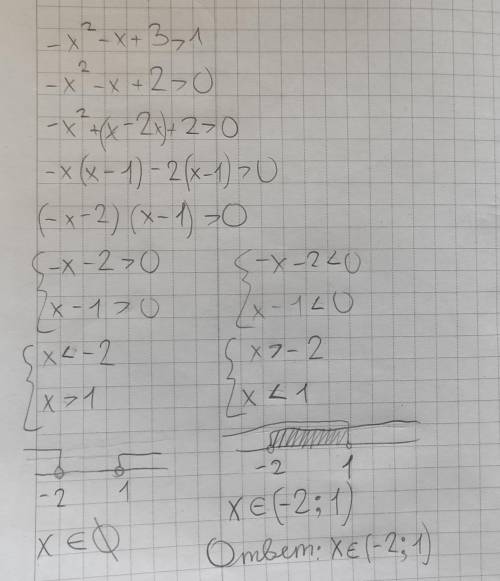 -x² - x + 3 > 1
-x² - x + 2 > 0
-x² + (x - 2x) + 2 > 0
-x(x - 1) - 2(x - 1) > 0
(-x - 2)(x - 1) > 0
{ -x - 2 > 0 { -x - 2 < 0
{ x - 1 > 0 { x - 1 < 0
{ x < -2 { x > -2
{ x > 1 { x < 1
-2 1 -2 1
x ∈ ∅ x ∈ (-2; 1)
Ответ: x ∈ (-2; 1)